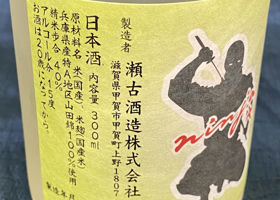 製造者
瀬古酒造株式会社
滋賀県甲賀市甲賀町上野1807
日本酒 内容量300ml
原材料名 米(国産)、米麹(国産米)
兵庫県産特A地区山田錦100%使用
精米歩合 40%
アルコール分 15度
お酒は20歳になってから。
製造年月
ninja